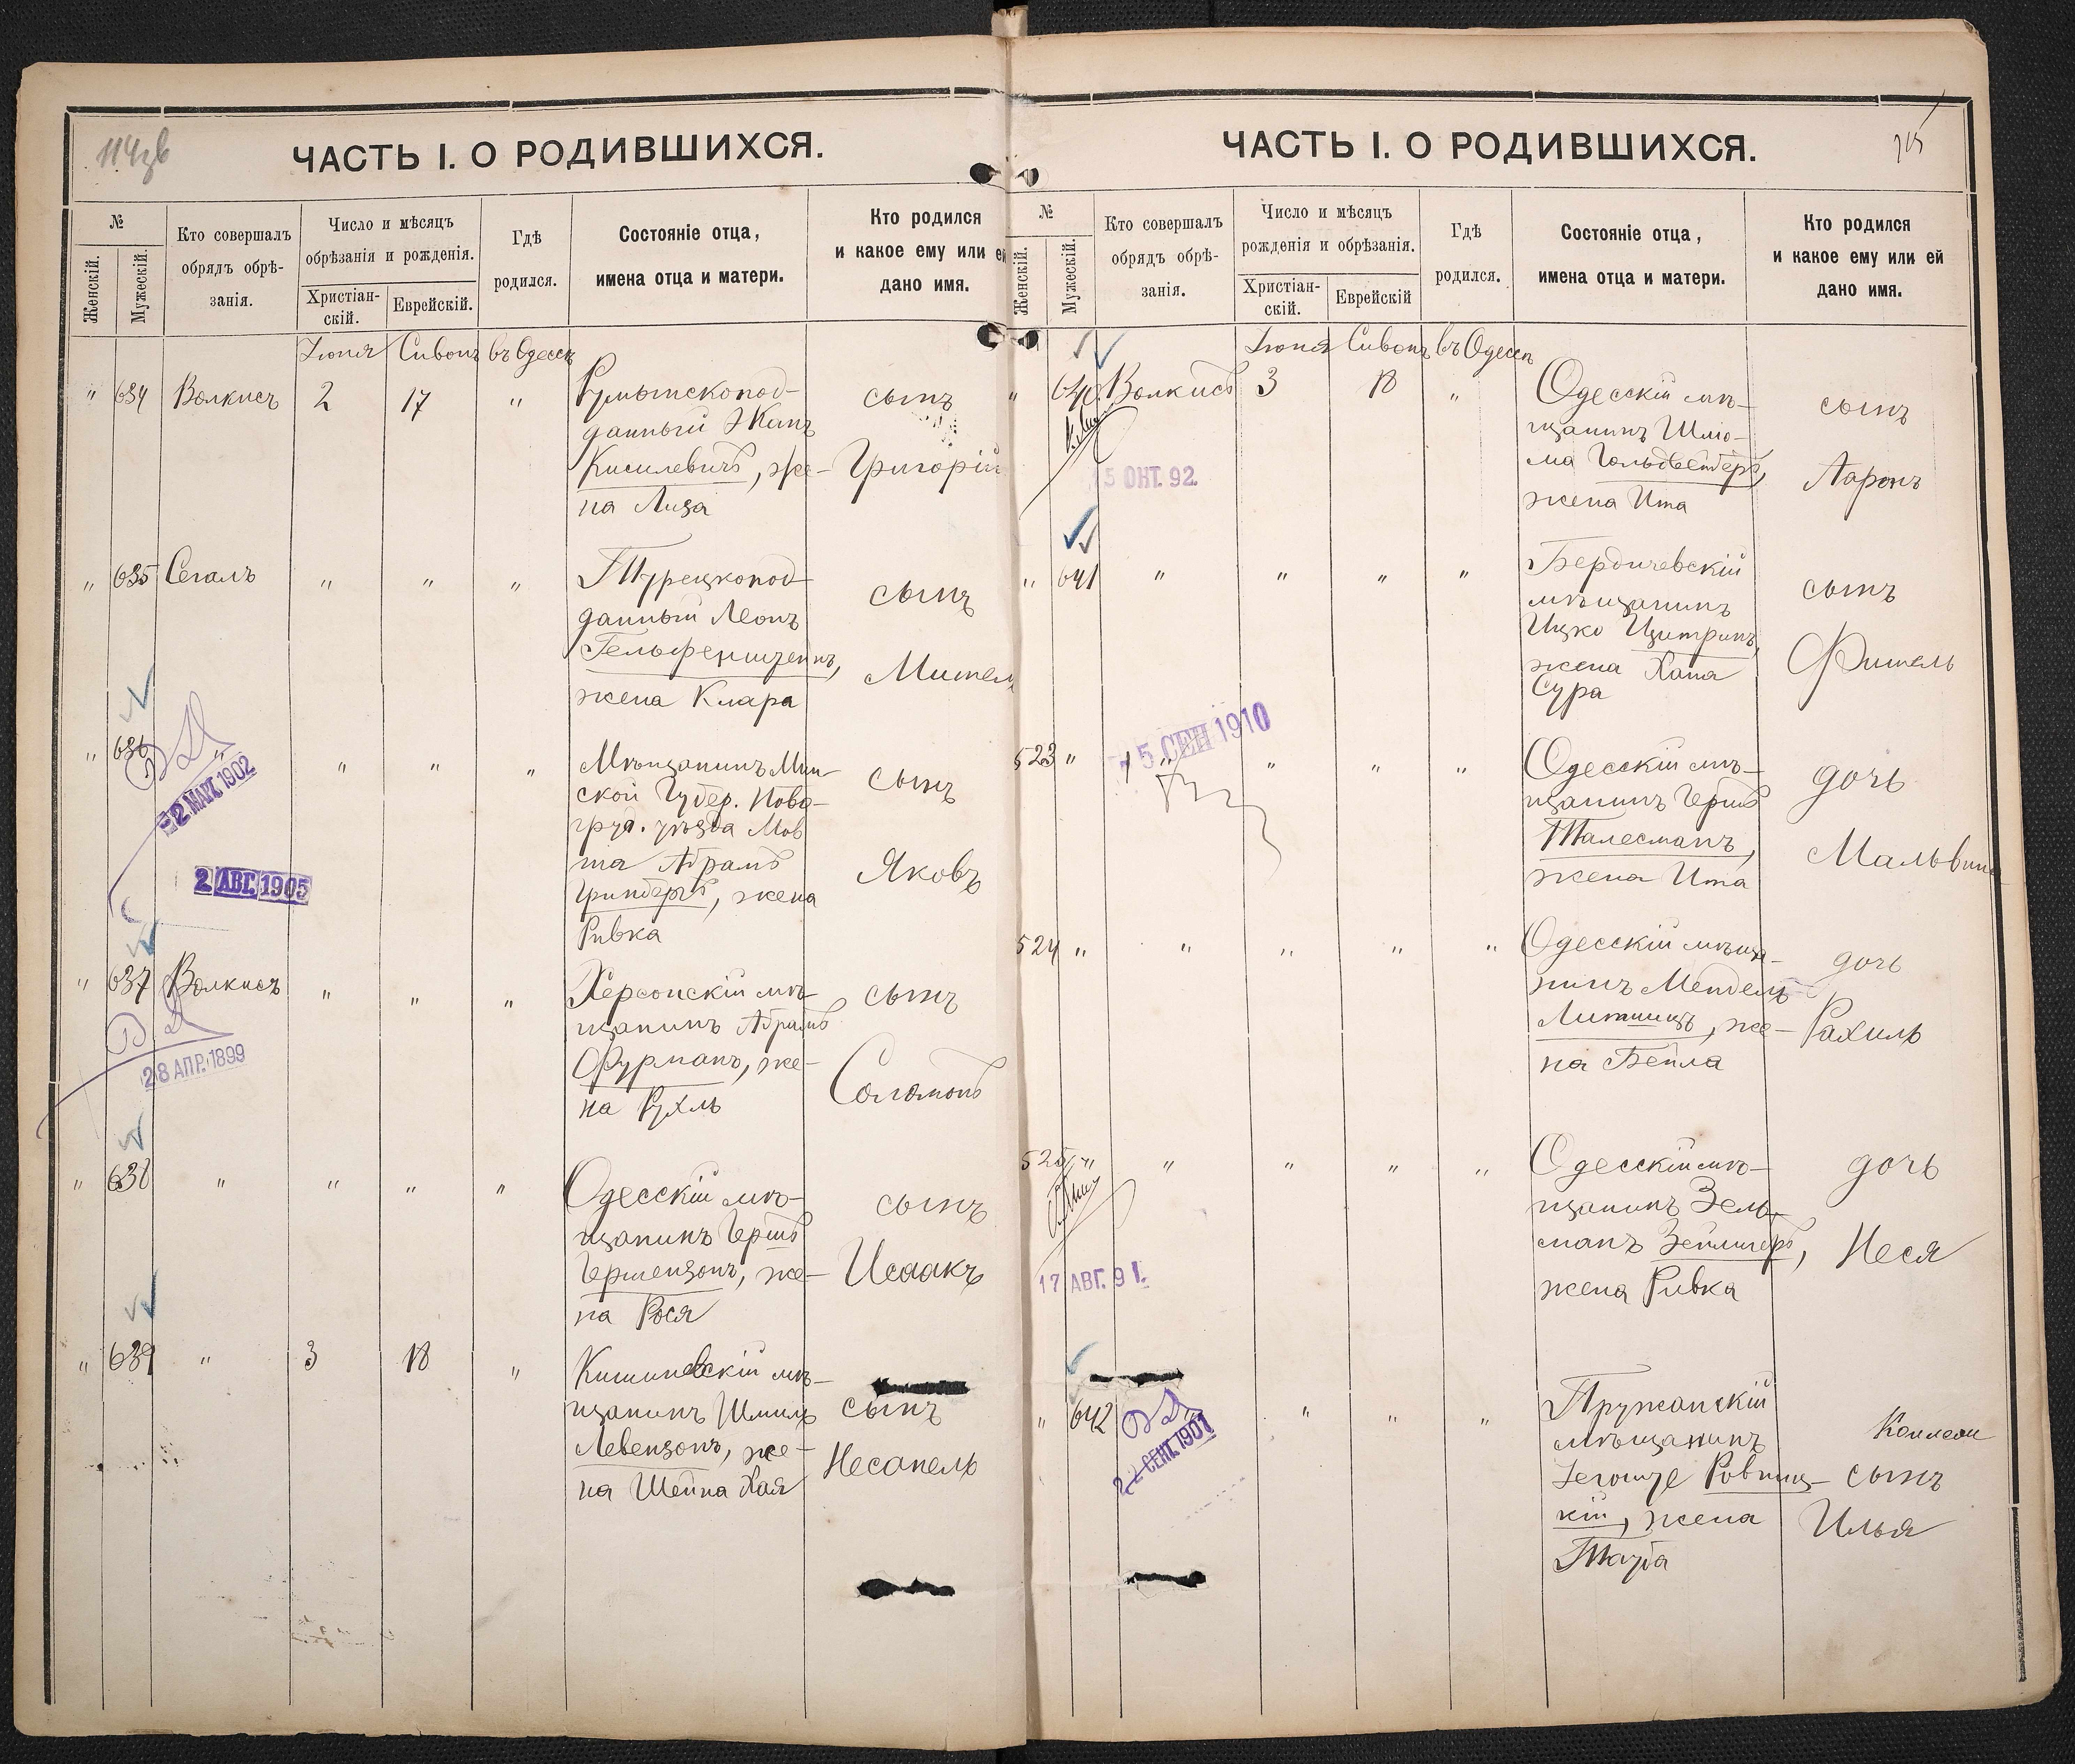 ЧАСТЬ I. О РОДИВШИХСЯ.
№
Женскій.
Мужескій.
Кто совершалъ
обрядъ обрѣ-
занія.
Число и мѣсяцъ
обрѣзанія и рожденія.
Христіан-
скій.
Еврейскій.
Гдѣ
родился.
Состояніе отца,
имена отца и матери.
Кто родился
и какое ему или ей
дано имя.
Іюня Сивонъ въ Одессѣ
" 634 Волкисъ 2 17 "
Румынскопод-
данный
Кисилевичъ, же-
на Лиза
сынъ
Григорій
" 635 Сегалъ " " "
Турецкопод-
данный Леонъ
Гельфенштейнъ,
жена Клара
сынъ
" 636 " " " "
22 МАРТ. 1902
2 АВГ. 1905
Мѣщанинъ Мин-
ской Губер.Ново-
груд. уѣзда Мов
ша Абрамъ
Гринбергъ, жена
Ривка
сынъ
Яковъ
" 637 Волкисъ " " "
28 АПР. 1899
Херсонскій мѣ-
щанинъ Абрамъ
Фурманъ, же-
на Рухль
сынъ
Соломонъ
" 638 " " " "
Одесскій мѣ-
щанинъ Гершъ
Гершензонъ, же-
на Рося
сынъ
Исаакъ
" 639 " 3 18 "
Кишиневскій мѣ-
щанинъ Шмиль
Левензонъ, же-
на Шейна Хая
сынъ
Несанель
ЧАСТЬ I. О РОДИВШИХСЯ.
№
Женскій.
Мужескій.
Кто совершалъ
обрядъ обрѣ-
занія.
Число и мѣсяцъ
рожденія и обрѣзанія.
Христіан-
скій.
Еврейскій
Гдѣ
родился.
Состояніе отца,
имена отца и матери.
Кто родился
и какое ему или ей
дано имя.
Іюня Сивонъ въ Одессѣ
" 640 Волкисъ 3 18 "
15 ОКТ. 92.
Одесскій мѣ-
щанинъ Шлио-
ма
жена Ита
сынъ
Ааронъ
" 641 " " " "
Бердичевскій
мѣщанинъ
Ицко Цитринъ,
жена Хана
Сура
сынъ
Фишель
523 " " " " "
5 СЕН 1910
Одесскій мѣ-
щанинъ Гершъ
Талесманъ,
жена Ита
дочь
Мальвина
524 " " " " "
Одесскій мѣща-
нинъ Мендель
Литвицъ, же-
на Бейла
дочь
Рахиль
525 " " " " "
17 АВГ. 91.
Одесскій мѣ-
щанинъ Зель-
манъ Зейлигеръ,
жена Ривка
дочь
Неся
" 642 " " " "
22 СЕНТ. 1901
Пружанскій
мѣщанинъ
Ровниц-
кій, жена
Тауба
сынъ
Илья